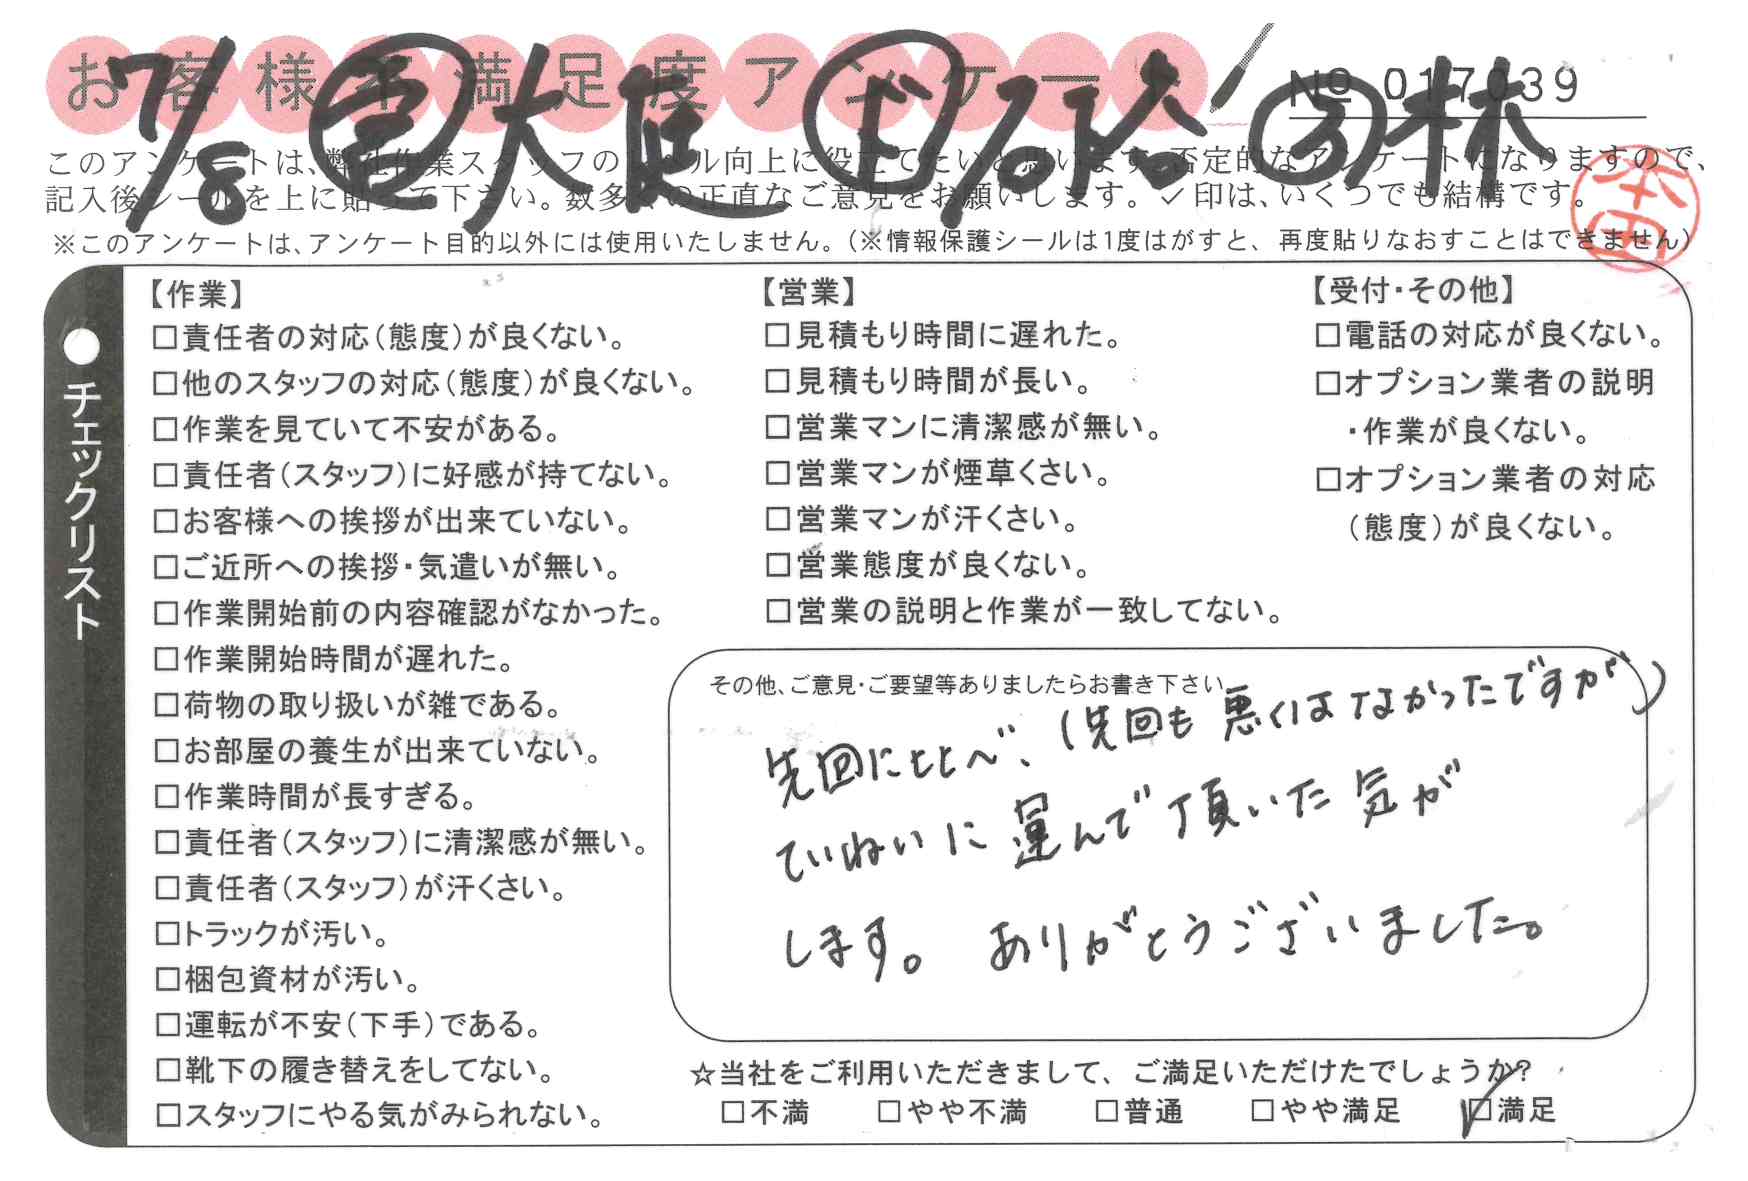 お客様不満足度アンケート
7/8
大庭
林
No 017039
このアンケートは、弊社作業スタッフのレベル向上に役立てたいと思います。否定的なアンケートになりますので、
記入後シールを上に貼って下さい。数多くの正直なご意見をお願いします。✓印は、いくつでも結構です。
※このアンケートは、アンケート目的以外には使用いたしません。(※情報保護シールは1度はがすと、再度貼りなおすことはできません)
本田
●チェックリスト
【作業】
□責任者の対応(態度)が良くない。
□他のスタッフの対応(態度)が良くない。
□作業を見ていて不安がある。
□責任者(スタッフ)に好感が持てない。
□お客様への挨拶が出来ていない。
□ご近所への挨拶・気遣いが無い。
□作業開始前の内容確認がなかった。
□作業開始時間が遅れた。
□荷物の取り扱いが雑である。
□お部屋の養生が出来ていない。
□作業時間が長すぎる。
□責任者(スタッフ)に清潔感が無い。
□責任者(スタッフ)が汗くさい。
□トラックが汚い。
□梱包資材が汚い。
□運転が不安(下手)である。
□靴下の履き替えをしてない。
□スタッフにやる気がみられない。
【営業】
□見積もり時間に遅れた。
□見積もり時間が長い。
□営業マンに清潔感が無い。
□営業マンが煙草くさい。
□営業マンが汗くさい。
□営業態度が良くない。
□営業の説明と作業が一致してない。
【受付・その他】
□電話の対応が良くない。
□オプション業者の説明
・作業が良くない。
□オプション業者の対応
(態度)が良くない。
その他、ご意見・ご要望等ありましたらお書き下さい。
先回にヒとべ、(先回も悪くはなかったですが)
ていねいに運んで頂いた気が
します。ありがとうございました。
☆当社をご利用いただきまして、ご満足いただけたでしょうか?
□不満 □やや不満 □普通 □やや満足 ☑満足